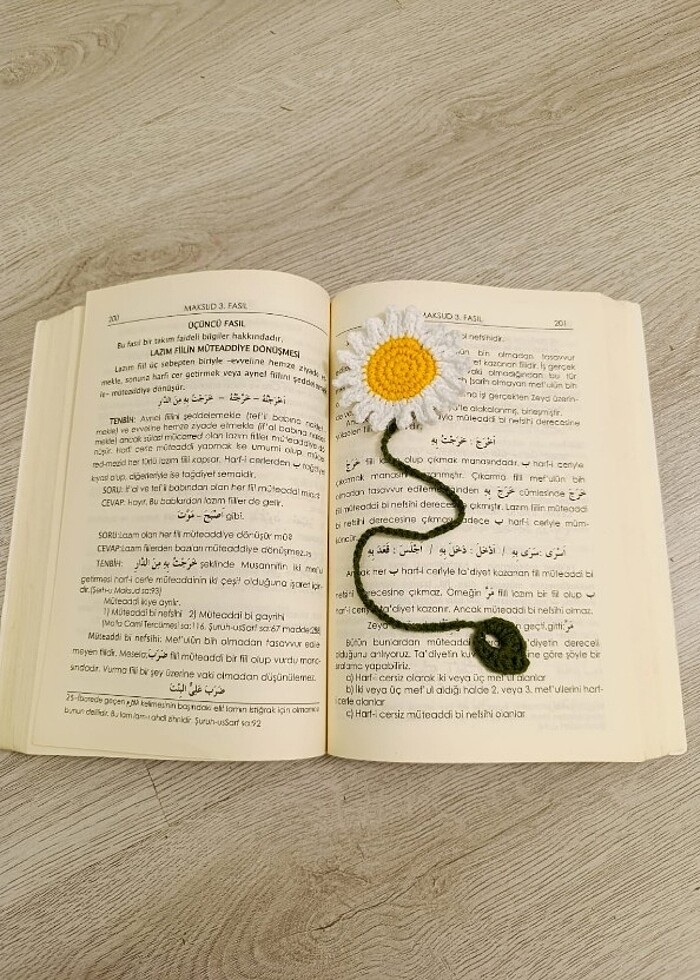 200
MAKSUD 3. FASIL
ÜÇÜNCÜ FASIL
Bu fasıl bir takım faideli bilgiler hakkındadır.
LAZIM FİİLİN MÜTEADDİYE DÖNÜŞMESİ
Lazım fiil üç sebepten biriyle -evveline hemze ziyade
mekle, sonuna harfi cer getirmek veya aynel fiilini şeddelemek
le- müteaddiye dönüşür.
أَخْرَجْتُهُ – خَرَّجْتُهُ – خَرَجْتُ بِهِ مِنَ الدَّارِ
TENBİH: Aynel fiilini şeddelemekle (tef'il babına
mekle) ve evveline hemze ziyade etmekle (if'al babına
mekle) ancak sülasi mücerred olan lazım fiiller müteaddi
nüşür. Harf cerle müteaddi yapmak ise umumi olup,
red-mezid her türlü lazım fiili kapsar. Harf-i cerlerden ب
kıyasi olup, diğerleriyle ise tağdiyet semaidir.
SORU: İf'al ve tef'il babından olan her fiil müteaddi
CEVAP: Hayır. Bu bablardan lazım fiiller de gelir.
أَصْبَحَ – مَوَّتَ gibi.
SORU:Lazım olan her fiil müteaddiye dönüşür mü?
CEVAP:Lazım fiillerden bazıları müteaddiye dönüşmez.
TENBİH: خَرَجْتُ بِهِ مِنَ الدَّارِ şeklinde Musannifin iki
getirmesi harf-i cerle müteaddinin iki çeşit olduğuna işaret
dir.(Şerh-u Maksud sa:93)
Müteaddi ikiye ayrılır.
1) Müteaddi bi nefsihi 2) Müteaddi bi gayrihi
(Molla Cami Tercümesi sa:116, Şuruh-usSarf sa:67 madde:
Müteaddi bi nefsihi: Mef'ulün bih olmadan tasavvur edile
meyen fiildir. Mesela; ضَرَبَ fiili müteaddi bir fiil olup vurdu
sındadır. Vurma fiili bir şey üzerine vaki olmadan düşünülemez.
ضَرَبَ عَلِيٌّ الْبِنْتَ
25-(İbarede geçen kelimesinin başındaki elif lamın istiğrak için olmamasıdır
bunun delilidir. Bu lam lam-ı ahdi zihnidir. Şuruh-usSarf sa:92
MAKSUD 3. FASIL
201
bi nefsihidir.
bih olmadan tasavvur
kazanan fiildir. İş gerçek
vaki olmadığından bu tür
(sarih olmayan mef'ulün bih
işi gerçekten Zeyd üzerin-
alakalanmış, birleşmiştir.
müteaddi bi nefsihi derecesine
fiiller
أَخْرَجَ : خَرَجْتُ بِهِ
خَرَجَ fiili olup çıkmak manasındadır. ب harf-i ceriyle
çıkarmak manasını kazanmıştır. Çıkarma fiili mef'ulün bih
olmadan tasavvur edilemediğinden خَرَجَ بِهِ cümlesinde خَرَجَ
bi nefsihi derecesine çıkmıştır. Lazım fiilin müteaddi
bi nefsihi derecesine çıkması sadece ب harf-i ceriyle müm-
kündür.
أَسْرَى : سَرَى بِهِ / أَدْخَلَ : دَخَلَ بِهِ / أَجْلَسَ : قَعَدَ بِهِ
Ancak her ب harf-i ceriyle ta'diyet kazanan fiil müteaddi bi
nefsihi derecesine çıkmaz. Örneğin مَرَّ fiili lazım bir fiil olup ب
harf-i ceriyle ta'diyet kazanır. Ancak müteaddi bi nefsihi olmaz.
geçti,gitti: مَرَّ
Bütün bunlardan müteaddi ta'diyetin dereceli
olduğunu anlıyoruz. Ta'diyetin göre şöyle bir
sıralama yapabiliriz.
a) Harf-i cersiz olarak iki veya üç mef'ul alanlar
b) İki veya üç mef'ul aldığı halde 2. veya 3. mef'ullerini harf-
i cerle alanlar
c) Harf-i cersiz müteaddi bi nefsihi olanlar